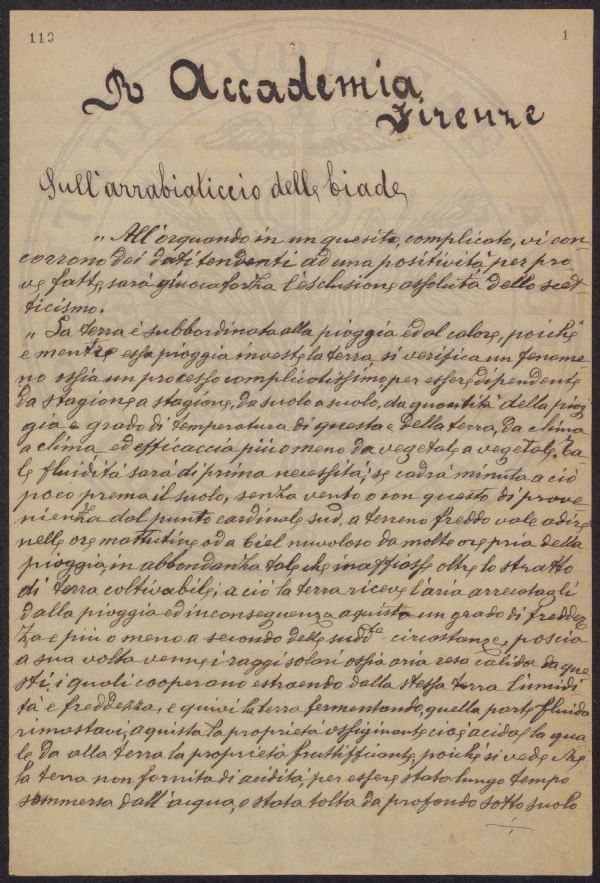 119 1
R Accademia
Firenze
Sull'arrabiaticcio delle biade
"All'orquando in un quesito, complicato, vi con-
corrono dei dati tendenti ad una positività per pro
ve fatte, sarà giuocaforza l'esclusione assoluta dello scet-
ticismo.
"La terra è subbordinata alla pioggia ed al calore, poiché
e mentre essa pioggia investe la terra, si verifica un fenome
no ossia un processo complicatissimo per essere dipendente
da stagione a stagione, da suolo a suolo, da quantità della piog
gia e grado di temperatura di questa e della terra, da clima
a clima ed efficaccia più o meno da vegetale a vegetale. Ta
le fluidità sarà di prima necessità; se cadrà minuta a ciò
poco prema il suolo, senza vento o con questo di prove
nienza dal punto cardinale sud, a terreno freddo vale a dire
nelle ore mattutine od a ciel nuvoloso da molto ore pria della
pioggia, in abbondanza tale che inaffiasse oltre lo stratto
di terra coltivabile; a ciò la terra riceve l'aria arrecatagli
dalla pioggia ed inconseguenza aquista un grado di freddez
za e più o meno a secondo delle sudd.te circostanze, poscia
a sua volta venne i raggi solari ossia aria resa calida da que
sti, i quali cooperano estraendo dalla stessa terra l'umidi
tà e freddezza, e quivi la terra fermentando, quella parte fluida
rimastavi, aquista la proprietà ossiginante cioè acida, la qua
le da alla terra la proprietà fruttifficante, poiché si vede che
la terra non fornita di acidità, per essere stata lungo tempo
sommersa dall'acqua, o stata tolta da profondo sotto suolo